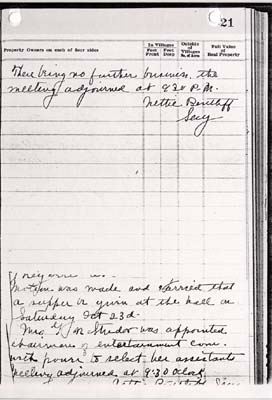 21
Property Owners on each of four sides
In Villages
Feet Front
Feet Deep
Outside of Villages
Full Value of Real Property
There being no further business, the
meeting adjourned at 9:30 P.M.
Nettie
Secy
Motion was made and carried that
a supper be given at the hall on
Saturday Oct 23d.
Mrs was appointed
chairman of entertainment com.
with power to select her assistants
Meeting adjourned at 9:30 Oclock